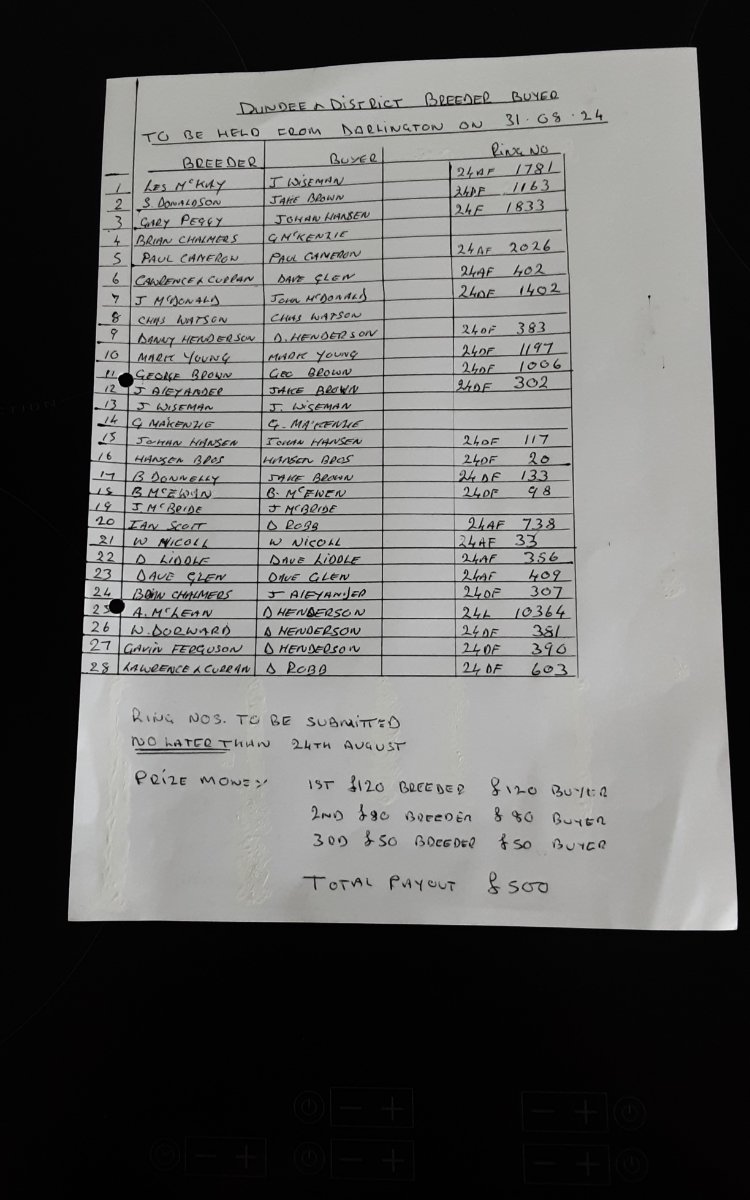 DUNDEE & DISTRICT BREEDER BUYER
TO BE HELD FROM DARLINGTON ON 31.08.24
BREEDER BUYER RING NO
1 LES McKAY J WISEMAN 24AF 1781
2 S DONALDSON JAKE BROWN 24DF 1163
3 GARY PEGGY JOHAN HANSEN 24F 1833
4 BRIAN CHALMERS G McKENZIE
5 PAUL CAMERON PAUL CAMERON 24AF 2026
6 LAWRENCE & CURRAN DAVE GLEN 24AF 402
7 J McDONALD JOHN McDONALD 24DF 1402
8 CHAS WATSON CHAS WATSON
9 DANNY HENDERSON D. HENDERSON 24DF 383
10 MARK YOUNG MARK YOUNG 24DF 1197
11 GEORGE BROWN GEO BROWN 24DF 1006
12 J ALEXANDER JAKE BROWN 24DF 302
13 J WISEMAN J. WISEMAN
14 G MAKENZIE G. MA'KENZIE
15 JOHAN HANSEN JOHAN HANSEN 24DF 117
16 HANSEN BROS HANSEN BROS 24DF 20
17 B DONNELLY JAKE BROWN 24DF 133
18 B McEWEN B. McEWEN 24DF 98
19 J McBRIDE J McBRIDE
20 IAN SCOTT D ROBB 24AF 738
21 W NICOLL W NICOLL 24AF 33
22 D LIDDLE DAVE LIDDLE 24AF 356
23 DAVE GLEN DAVE GLEN 24AF 409
24 BRIAN CHALMERS J ALEXANDER 24DF 307
25 A. McLEAN D HENDERSON 24L 10364
26 W. DORWARD D HENDERSON 24DF 381
27 GAVIN FERGUSON D HENDERSON 24DF 390
28 LAWRENCE & CURRAN D ROBB 24DF 603
RING NOS. TO BE SUBMITTED
NO LATER THAN 24TH AUGUST
PRIZE MONEY 1ST £120 BREEDER £120 BUYER
2ND £80 BREEDER £80 BUYER
3RD £50 BREEDER £50 BUYER
TOTAL PAYOUT £500